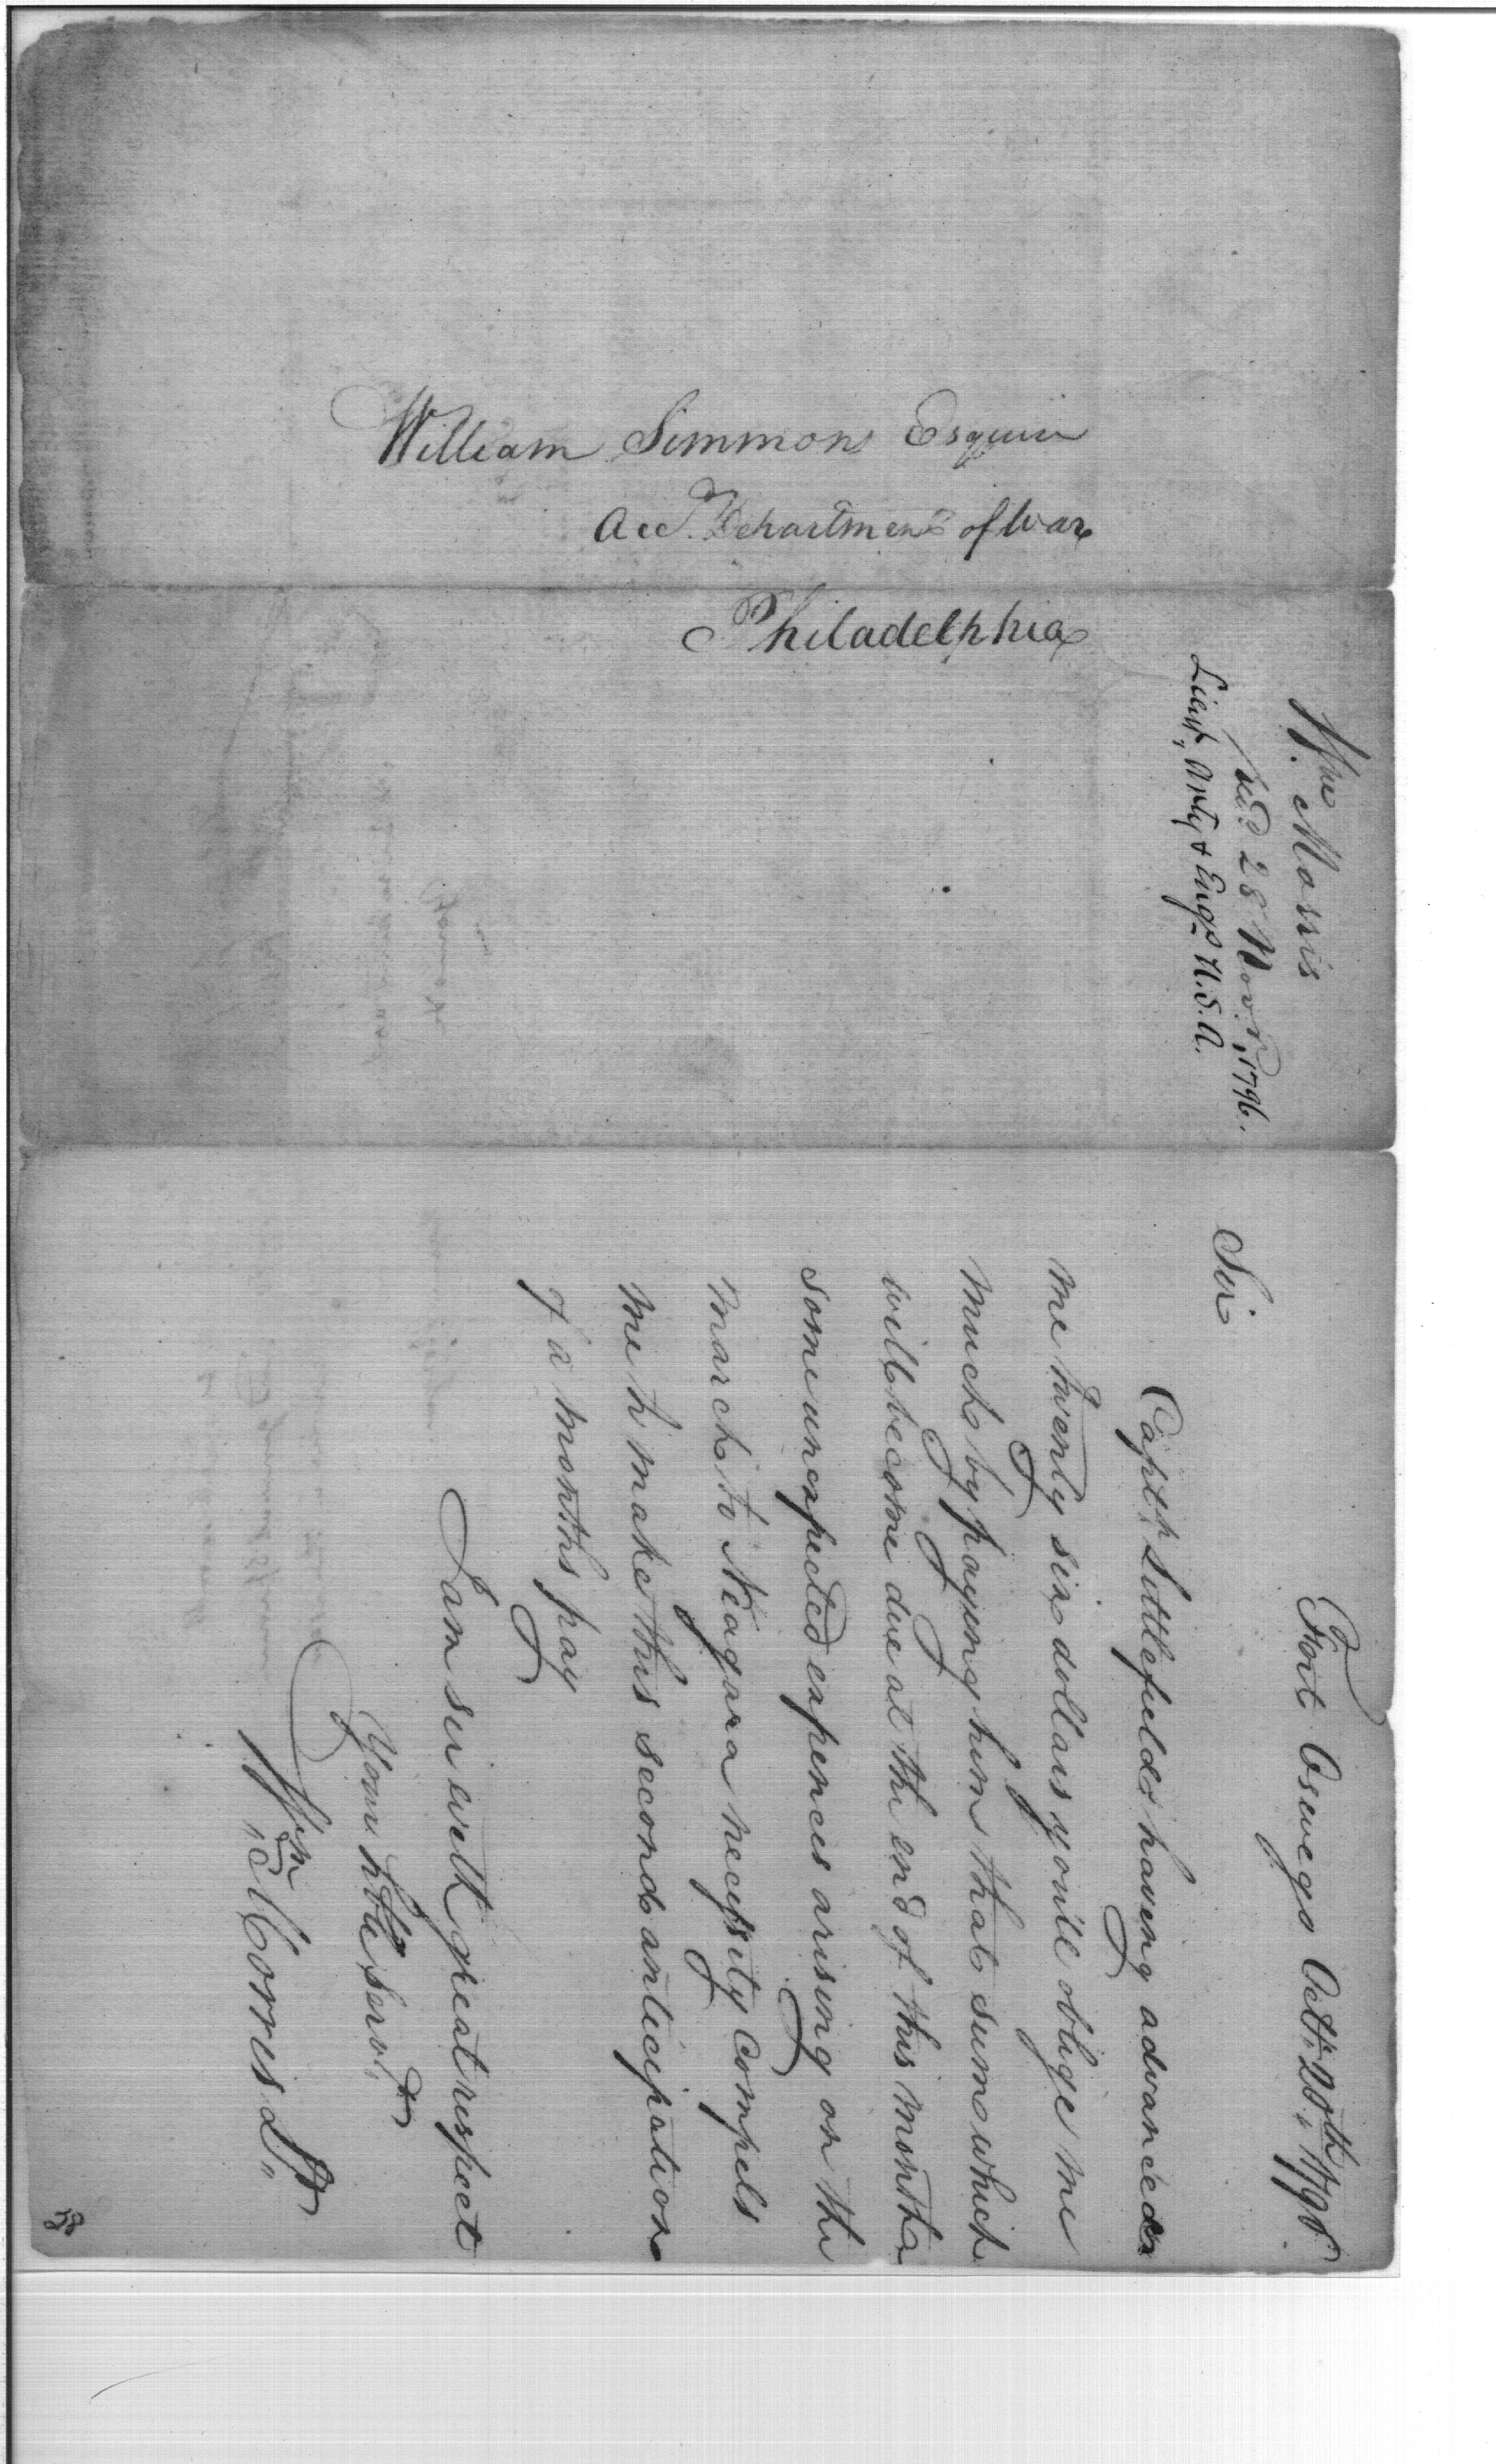 William Simmons Esquire
Acct. Department of War
Philadelphia
Wm. Morris
recd 28 Novr. 1796.
Lieut, Arty & Engrs U.S.A.
Fort Oswego Octr. 20th, 1796
Sir
Capt. Littlefield having advanced
me twenty six dollars you'll oblige me
much by paying him that sum which
will become due at the end of this month
some unexpected expences arising on the
march to Niagara necessity compels
me to make this second anticipation
of a months pay
I am sir with great respect
Your hble servt.
Wm. Morris Lt